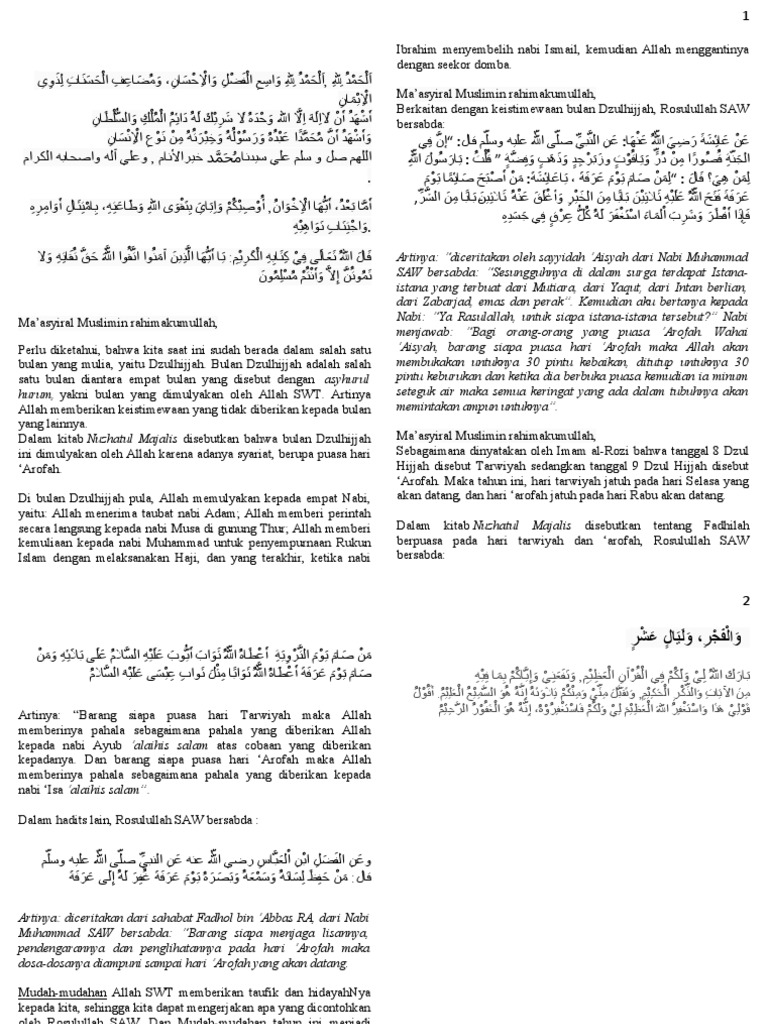 1
اَلْحَمْدُ لِلَّهِ ,اَلْحَمْدُ لِلَّهِ وَاسِعِ الْفَضْلِ وَالْاِحْسَانِ، وَمُضَاعِفِ الْحَسَنَاتِ لِذَوِي
الْاِيْمَانِ
أَشْهَدُ أَنْ لَااِلَهَ اِلَّا الله وَحْدَهُ لَا شَرِيْكَ لَهُ دَائِمُ الْمُلْكِ وَالسُّلْطَانِ
وَأَشْهَدُ أَنَّ مُحَمَّدًا عَبْدُهُ وَرَسُوْلُهُ وَخِيْرَتُهُ مِنْ نَوْعِ الْاِنْسَانِ
اللهم صل و سلم على سيدنامُحَمَّد خير الأنام , وعلى آله واصحابه الكرام
.
أَمَّا بَعْدُ، أَيُّهَا الْاِخْوَانُ, أُوْصِيْكُمْ وَاِيَايَ بِتَقْوَى اللهِ وَطَاعَتِهِ، بِامْتِثَالِ أَوَامِرِهِ
.وَاجْتِنَابِ نَوَاهِيْهِ
قَالَ اللهُ تَعَالَى فِيْ كِتَابِهِ الْكَرِيْمِ: يَا أَيُّهَا الَّذِيْنَ آمَنُوا اتَّقُوا اللَّهَ حَقَّ تُقَاتِهِ وَلَا
تَمُوتُنَّ إِلاَّ وَأَنْتُمْ مُسْلِمُونَ
Ma’asyiral Muslimin rahimakumullah,
Perlu diketahui, bahwa kita saat ini sudah berada dalam salah satu
bulan yang mulia, yaitu Dzulhijjah. Bulan Dzulhijjah adalah salah
satu bulan diantara empat bulan yang disebut dengan asyhurul
hurum, yakni bulan yang dimulyakan oleh Allah SWT. Artinya
Allah memberikan keistimewaan yang tidak diberikan kepada bulan
yang lainnya.
Dalam kitab Nuzhatul Majalis disebutkan bahwa bulan Dzulhijjah
ini dimulyakan oleh Allah karena adanya syariat, berupa puasa hari
‘Arofah.
Di bulan Dzulhijjah pula, Allah memulyakan kepada empat Nabi,
yaitu: Allah menerima taubat nabi Adam; Allah memberi perintah
secara langsung kepada nabi Musa di gunung Thur; Allah memberi
kemuliaan kepada nabi Muhammad untuk penyempurnaan Rukun
Islam dengan melaksanakan Haji, dan yang terakhir, ketika nabi
Ibrahim menyembelih nabi Ismail, kemudian Allah menggantinya
dengan seekor domba.
Ma’asyiral Muslimin rahimakumullah,
Berkaitan dengan keistimewaan bulan Dzulhijjah, Rosulullah SAW
bersabda:
عَنْ عَائِشَةَ رَضِيَ اللَّهُ عَنْهَا: عَنِ النَّبِيِّ صلّى اللَّه عليه وسلّم قال: "إنَّ فِي
الْجَنَّةِ قُصُورًا مِنْ دُرٍّ وَيَاقُوتٍ وزبَرْجَدٍ وَذَهَبٍ وَفِضَّةٍ " قُلْتُ : يَارَسُولَ اللَّهِ
لِمَنْ هِيَ؟ قَالَ : "لِمَنْ صَامَ يَوْمَ عَرَفَةَ ، يَاعَائِشَةُ: مَنْ أَصْبَحَ صَائِمًا يَوْمَ
عَرَفَةَ فَتَحَ اللَّهُ عَلَيْهِ ثَلاَثِيْنَ بَابًا مِنَ الْخَيْرِ وَأَغْلَقَ عَنْهُ ثَلاَثِيْنَ بَابًا مِنَ الشَّرِّ,
فَإِذَا أَفْطَرَ وَشَرِبَ الْمَاءَ اسْتَغْفَرَ لَهُ كُلُّ عِرْقٍ فِي جَسَدِهِ
Artinya: “diceritakan oleh sayyidah ‘Aisyah dari Nabi Muhammad
SAW bersabda: “Sesungguhnya di dalam surga terdapat Istana-
istana yang terbuat dari Mutiara, dari Yaqut, dari Intan berlian,
dari Zabarjad, emas dan perak“. Kemudian aku bertanya kepada
Nabi: “Ya Rasulallah, untuk siapa istana-istana tersebut?“ Nabi
menjawab: “Bagi orang-orang yang puasa ‘Arofah. Wahai
‘Aisyah, barang siapa puasa hari ‘Arofah maka Allah akan
membukakan untuknya 30 pintu kebaikan, ditutup untuknya 30
pintu keburukan dan ketika dia berbuka puasa kemudian ia minum
seteguk air maka semua keringat yang ada dalam tubuhnya akan
memintakan ampun untuknya“.
Ma’asyiral Muslimin rahimakumullah,
Sebagaimana dinyatakan oleh Imam al-Rozi bahwa tanggal 8 Dzul
Hijjah disebut Tarwiyah sedangkan tanggal 9 Dzul Hijjah disebut
‘Arofah. Maka tahun ini, hari tarwiyah jatuh pada hari Selasa yang
akan datang, dan hari ‘arofah jatuh pada hari Rabu akan datang.
Dalam kitab Nuzhatul Majalis disebutkan tentang Fadhilah
berpuasa pada hari tarwiyah dan ‘arofah, Rosulullah SAW
bersabda:
2
مَنْ صَامَ يَوْمَ التَّرْوِيَةِ أَعْطَاهُ اللَّهُ ثَوَابَ أَيُّوبَ عَلَيْهِ السَّلاَمُ عَلَى بَلاَئِهِ وَمَنْ
صَامَ يَوْمَ عَرَفَةَ أَعْطَاهُ اللَّهُ ثَوَابًا مِثْلَ ثَوَابِ عِيْسَى عَلَيْهِ السَّلاَمُ
Artinya: “Barang siapa puasa hari Tarwiyah maka Allah
memberinya pahala sebagaimana pahala yang diberikan Allah
kepada nabi Ayub ‘alaihis salam atas cobaan yang diberikan
kepadanya. Dan barang siapa puasa hari ‘Arofah maka Allah
memberinya pahala sebagaimana pahala yang diberikan kepada
nabi ‘Isa ‘alaihis salam“.
Dalam hadits lain, Rosulullah SAW bersabda :
وعَنِ الفَضْلِ ابْنِ الْعَبَّاسِ رضي اللَّه عنه عَنِ النبيِّ صلّى اللَّه عليه وسلّم
قال: مَنْ حَفِظَ لِسَانَهُ وَسَمْعَهُ وَبَصَرَهُ يَوْمَ عَرَفَةَ غُفِرَ لَهُ إلَى عَرَفَةَ
Artinya: diceritakan dari sahabat Fadhol bin ‘Abbas RA, dari Nabi
Muhammad SAW bersabda: “Barang siapa menjaga lisannya,
pendengarannya dan penglihatannya pada hari ‘Arofah maka
dosa-dosanya diampuni sampai hari ‘Arofah yang akan datang.
Mudah-mudahan Allah SWT memberikan taufik dan hidayahNya
kepada kita, sehingga kita dapat mengerjakan apa yang dicontohkan
oleh Rosulullah SAW. Dan Mudah-mudahan tahun ini menjadi
وَالْفَجْرِ، وَلَيَالٍ عَشْرٍ
بَارَكَ اللهُ لِيْ وَلَكُمْ فِي الْقُرْآنِ الْعَظِيْمِ, وَنَفَعَنِيْ وَاِيَّاكُمْ بِمَا فِيْهِ
مِنَ الآيَاتِ وَالذِّكْرِ الْحَكِيْمِ, وَتَقَبَّلَ مِنِّيْ وَمِنْكُمْ تِلاَوَتَهُ إِنَّهُ هُوَ السَّمِيْعُ الْعَلِيْمُ. أَقُوْلُ
قَوْلِيْ هَذَا وَاسْتَغْفِرُ اللهَ الْعَظِيْمَ لِيْ وَلَكُمْ فَاسْتَغْفِرُوْهُ، إِنَّهُ هُوَ الْغَفُوْرُ الرَّحِيْمُ